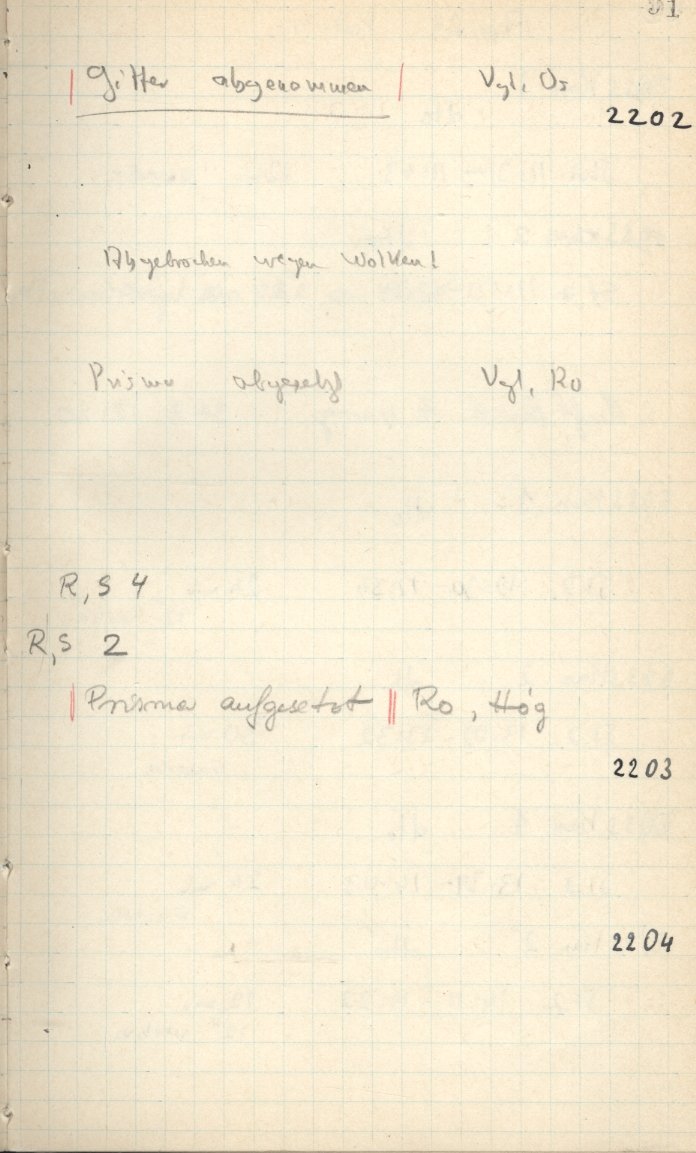 91
Gitter abgenommen Vgl. Os
2202
Abgebrochen wegen Wolken!
Prisma abgesetzt Vgl. Ro
R, S 4
R, S 2
Prisma aufgesetzt Ro, Hög
2203
2204